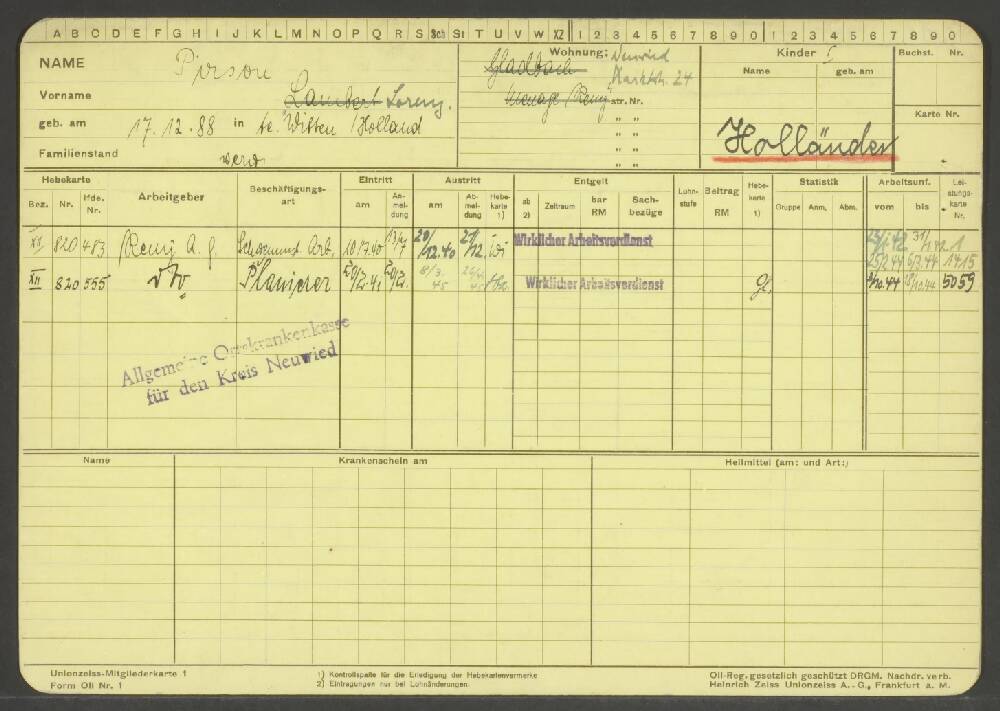 A B C D E F G H I J K L M N O P Q R S Sch St T U V W XZ 1 2 3 4 5 6 7 8 9 0 1 2 3 4 5 6 7 8 9 0
NAME Pirson
Vorname Lambert Lorenz.
geb. am 17.12.88 in te. Witten /Holland
Familienstand
Wohnung: Neuwied
Gladbach Marktstr. 24
Menage /Remy str. Nr.
" "
" "
" "
" "
Kinder
Name geb. am
Holländer
Buchst. Nr.
Karte Nr.
Hebekarte
Bez. Nr. lfde. Nr.
Arbeitgeber
Beschäftigungs-art
Eintritt
am An-mel-dung
Austritt
am Ab-mel-dung Hebe-karte 1)
Entgelt
ab 2) Zeitraum bar RM Sach-bezüge
Lohn-stufe
Beitrag RM
Hebe-karte 1)
Statistik
Gruppe Anm. Abm.
Arbeitsunf.
vom bis
Lei-stungs-karte Nr.
XI 820 483 Remy A. G. 10.7.40 13/7 20/12.40 Wirklicher Arbeitsverdienst 31/
25/2.44 6/3.44 1415
XII 820 555 20/2.41 8/3.45 Wirklicher Arbeitsverdienst 18/10.44 5059
Allgemeine Ortskrankenkasse
für den Kreis Neuwied
Name Krankenschein am Heilmittel (am: und Art:)
Unionzeiss-Mitgliederkarte 1
Form Oli Nr. 1
1) Kontrollspalte für die Erledigung der Hebekartenvermerke
2) Eintragungen nur bei Lohnänderungen.
Oli-Reg. gesetzlich geschützt DRGM. Nachdr. verb.
Heinrich Zeiss Unionzeiss A.-G., Frankfurt a. M.